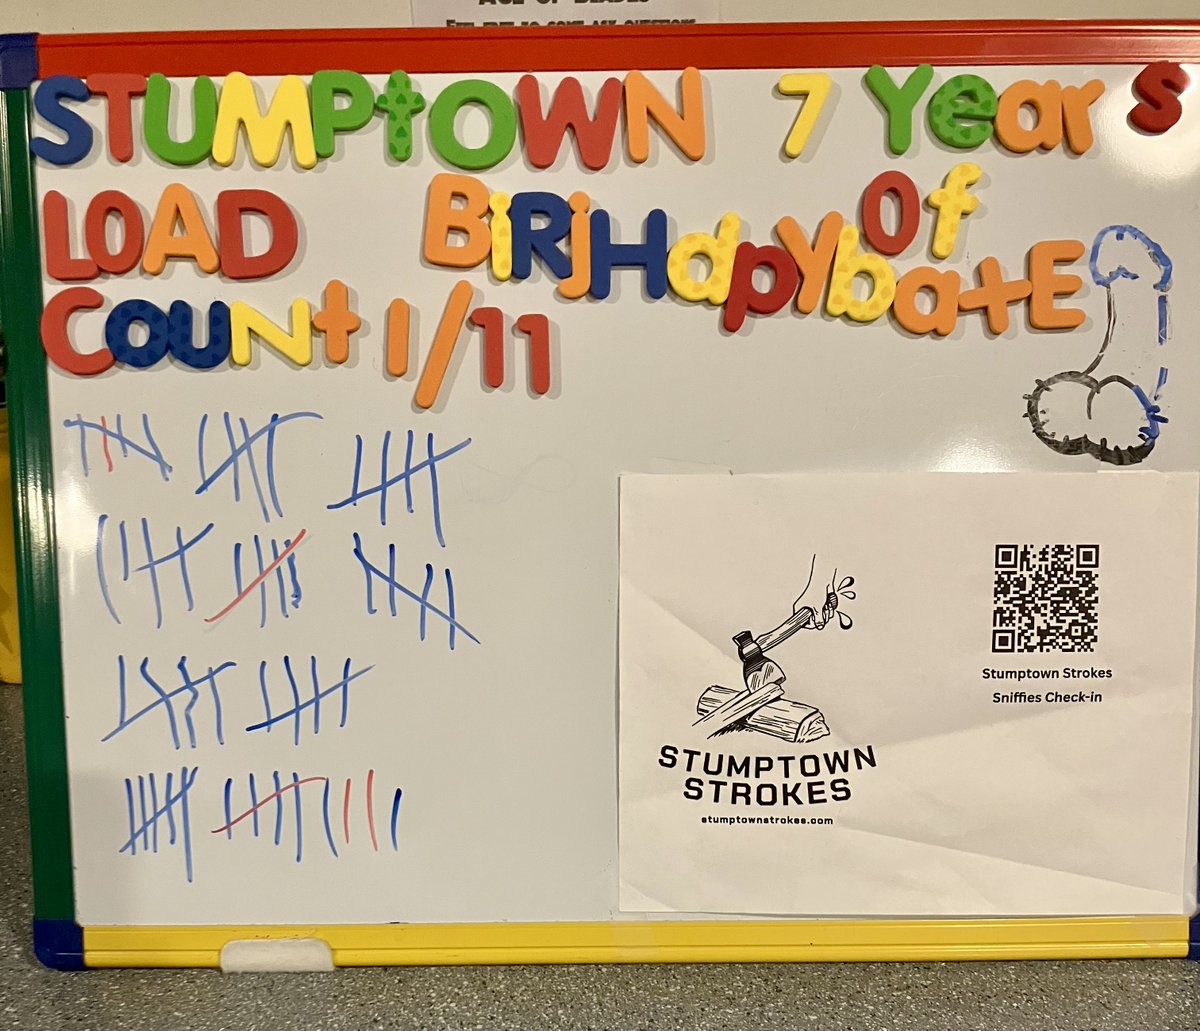 STUMPtOWN 7 Years
LOAD BiRjHdpYbatE Of
COUNt 1/11
Stumptown Strokes
Sniffies Check-in
STUMPTOWN
STROKES
stumptownstrokes.com